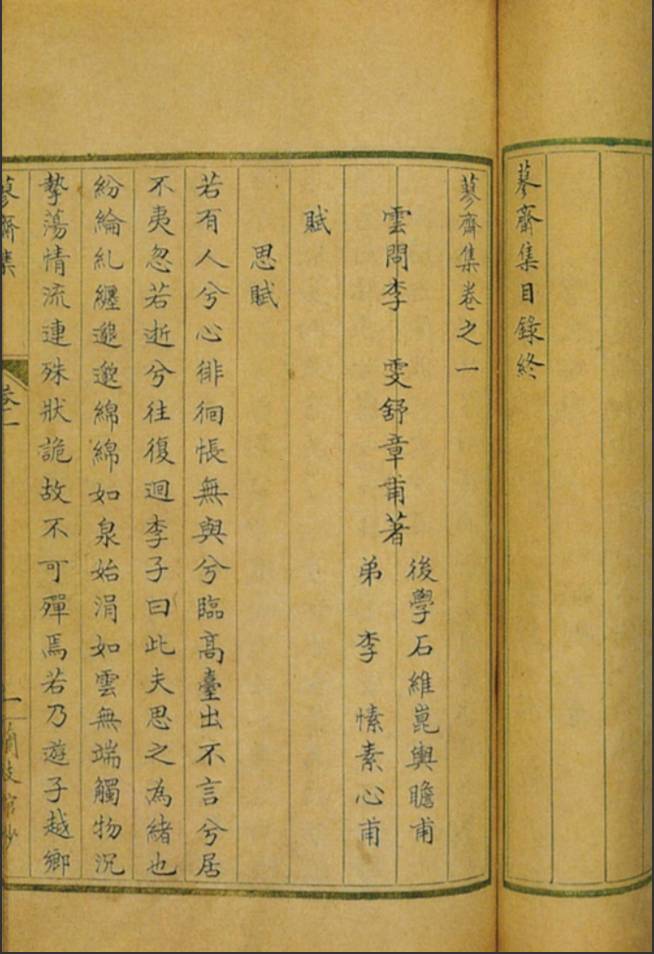 蓼齋集目錄終
蓼齋集卷之一
雲間李　雯舒章甫著
後學石維崑輿瞻甫
弟　李　愫素心甫
賦
思賦
若有人兮心徘徊悵無與兮臨高臺出不言兮居
不夷忽若逝兮往復迴李子曰此夫思之為緒也
紛綸糺纆邈邈綿綿如泉始涓如雲無端觸物沉
摯蕩情流連殊狀詭故不可殫焉若乃遊子越鄉
蓼齋集
卷一
一